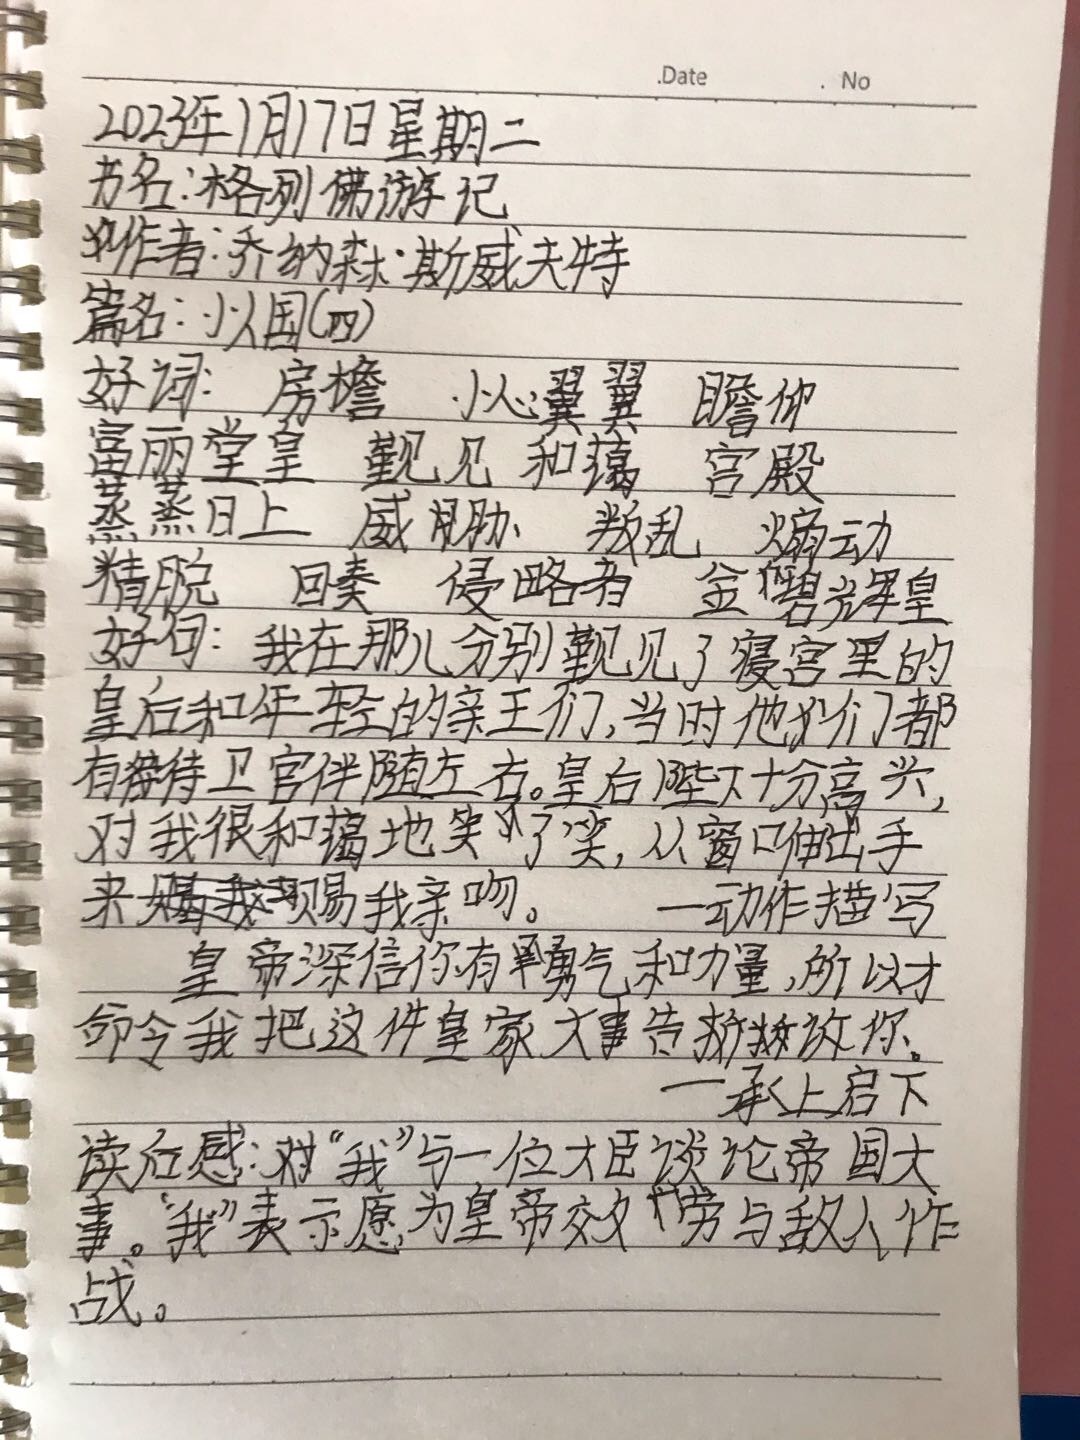 .Date . No
2023年1月17日星期二
书名:格列佛游记
作者:乔纳森·斯威夫特
篇名:小人国(四)
好词: 房檐 小心翼翼 瞻仰
富丽堂皇 觐见 和蔼 宫殿
蒸蒸日上 威胁 叛乱 煽动
精脱 回奏 侵略者 金碧辉皇
好句:我在那儿分别觐见了寝宫里的
皇后和年轻的亲王们,当时他们都
有侍卫官伴随左右。皇后陛下十分高兴,
对我很和蔼地笑了笑,从窗口伸出手
来赐我亲吻。 —动作描写
皇帝深信你有勇气和力量,所以才
命令我把这件皇家大事告诉你。
—承上启下
读后感:对“我”与一位大臣谈论帝国大
事。“我”表示愿为皇帝效劳与敌人作
战。